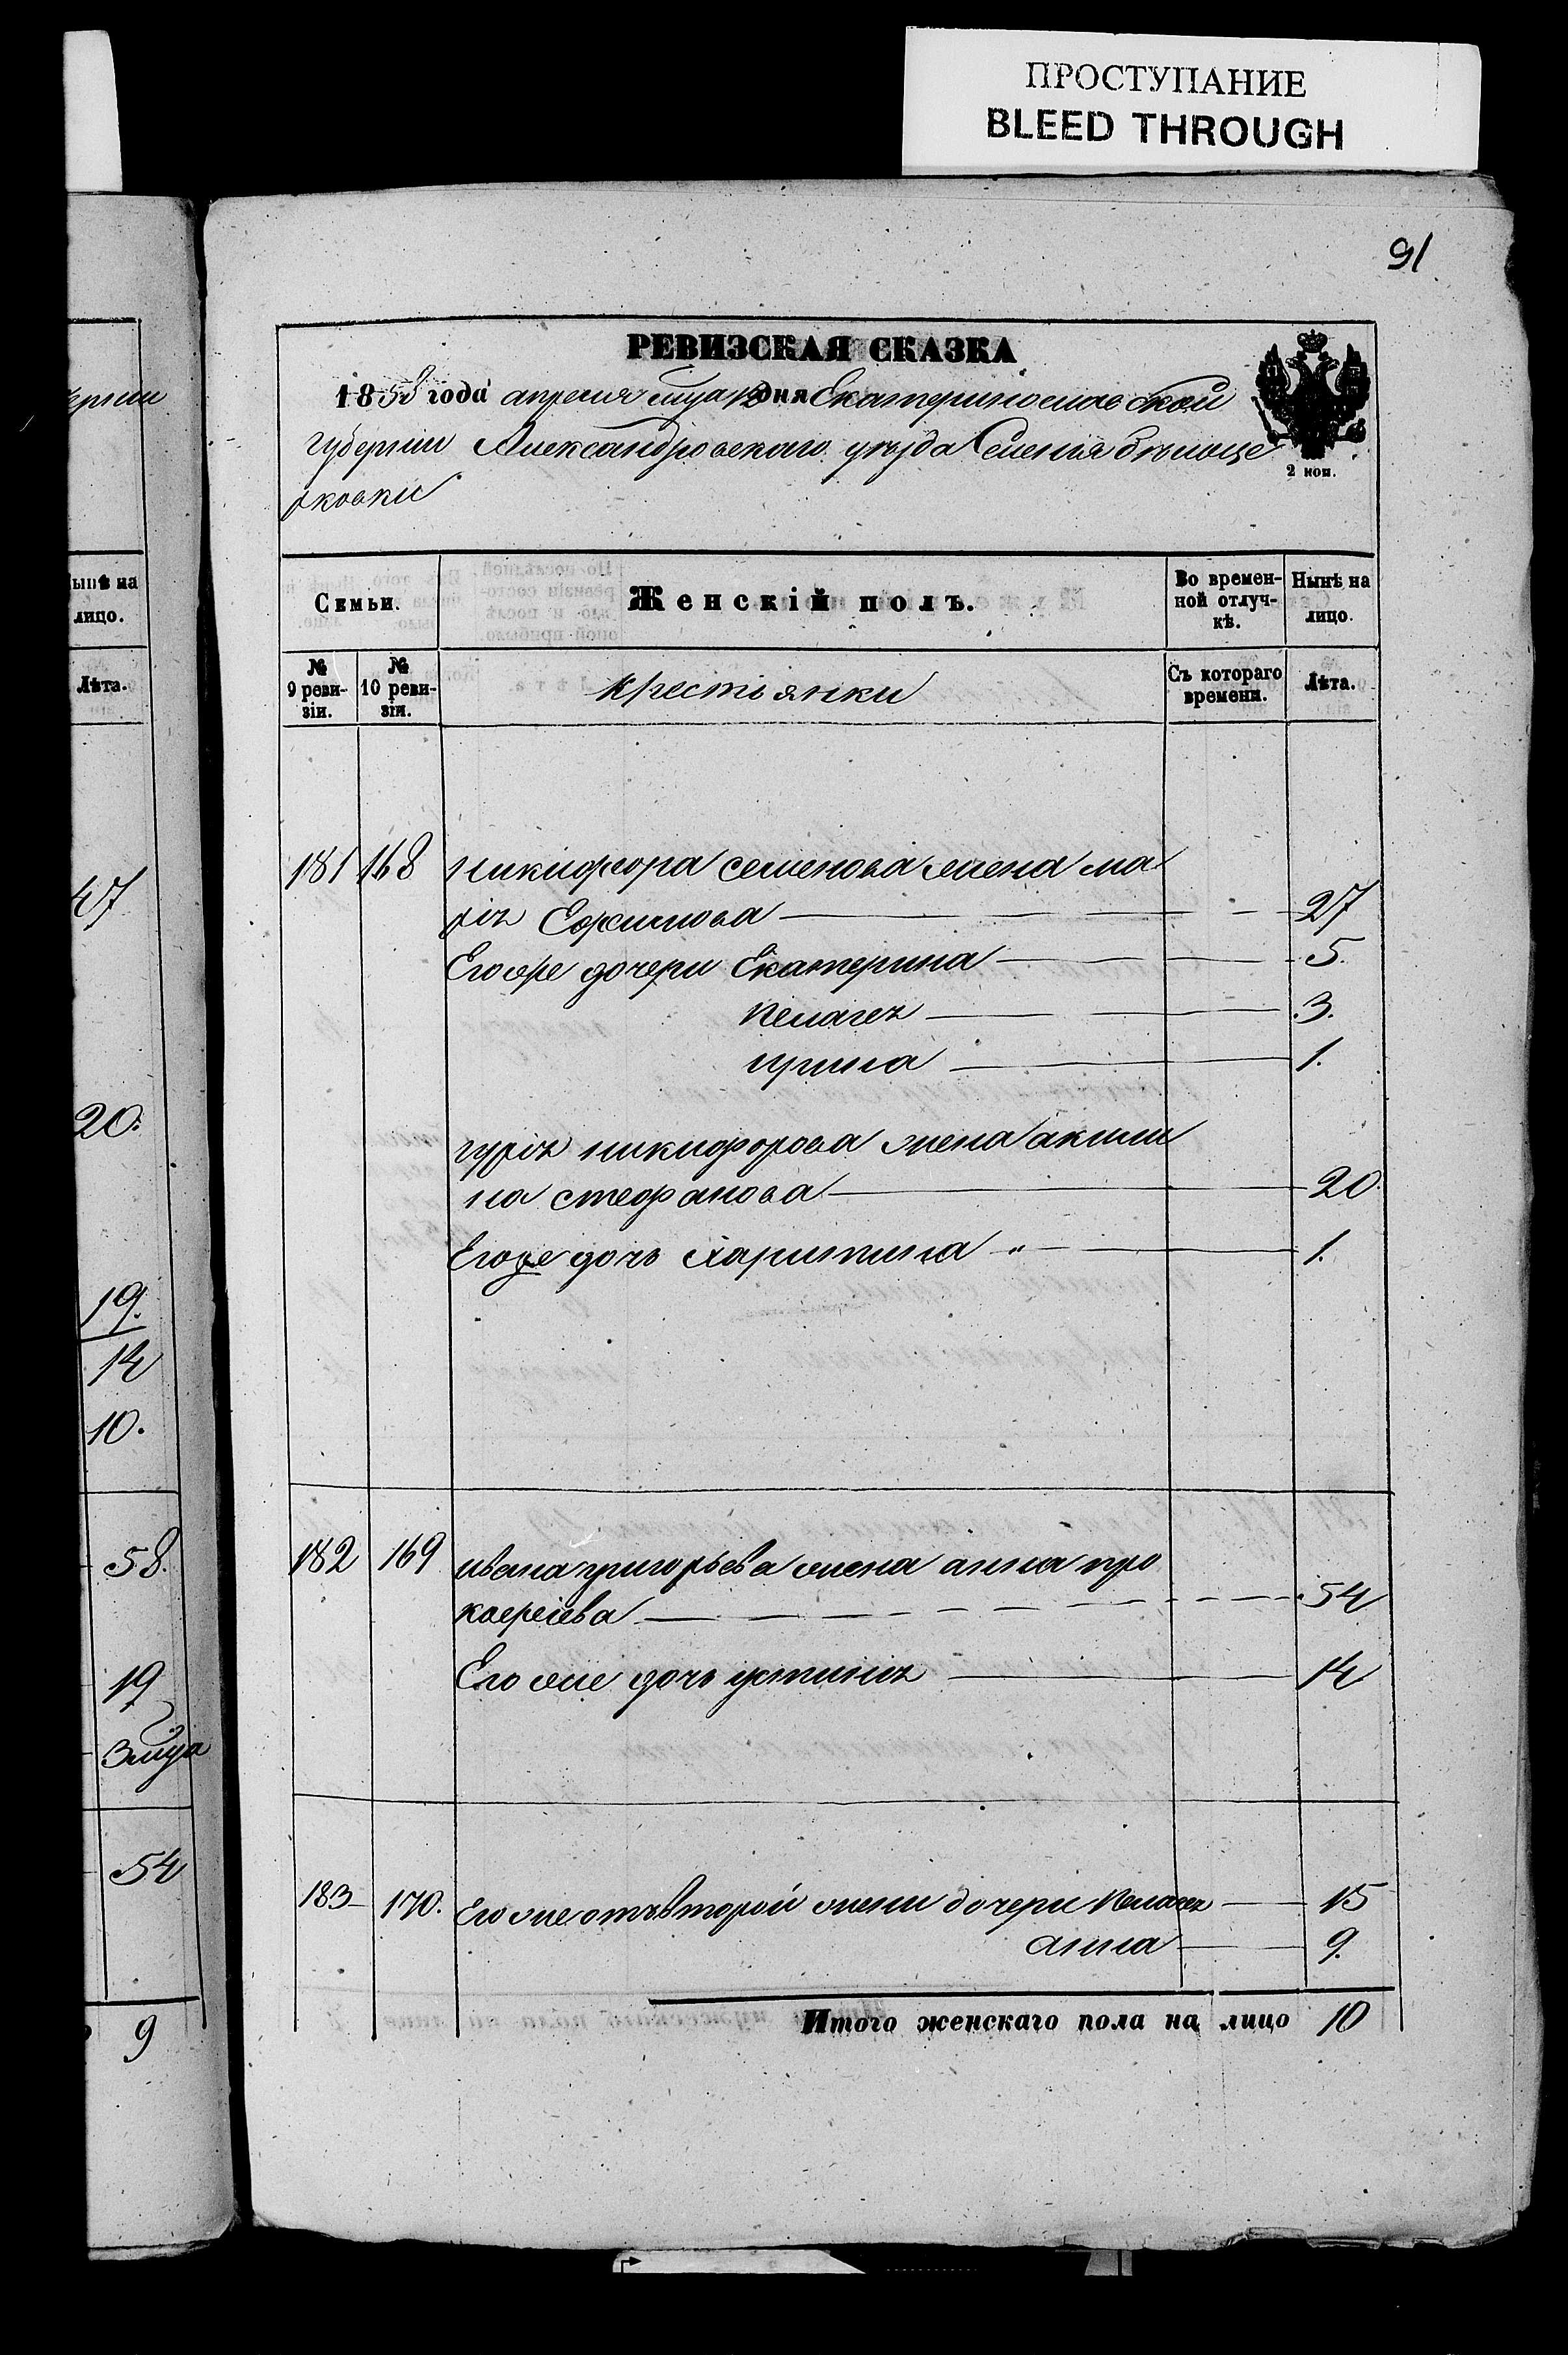 ПРОСТУПАНИЕ
BLEED THROUGH
91
РЕВИЗСКАЯ СКАЗКА
1858 года апреля мца 12 дня Екатеринославской
губернiи Александровскаго уѣзда Селенiя Бѣлоце
рковки
2 коп.
Семьи.
Женскiй полъ.
Во времен-
ной отлуч-
кѣ.
Нынѣ на
лицо.
№
9 реви-
зiи.
№
10 реви-
зiи.
крестьянки
Съ котораго
времени.
Лѣта.
181 168 никифора семенова жена ма
рiя Ефимова 27
Егоже дочери Екатерина 5.
Пелагея 3.
ирина 1.
гурiя никифорова жена акили
на стефанова 20.
Егоже дочь харитина 1.
182 169 ивана григорьева жена анна про
кофьева 54
Его же дочь устинiя 14
183 170. Его же отъ второй жены дочери Пелагея 15
анна 9.
Итого женскаго пола на лицо 10
ернiи
ынѣ на
лицо.
Лѣта.
47
20.
19.
14
10.
58.
19
3 мца
54
9